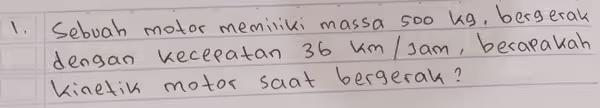 1. Sebuah motor memiliki massa 500 kg, bergerak
dengan kecepatan 36 km/jam, berapakah
kinetik motor saat bergerak?